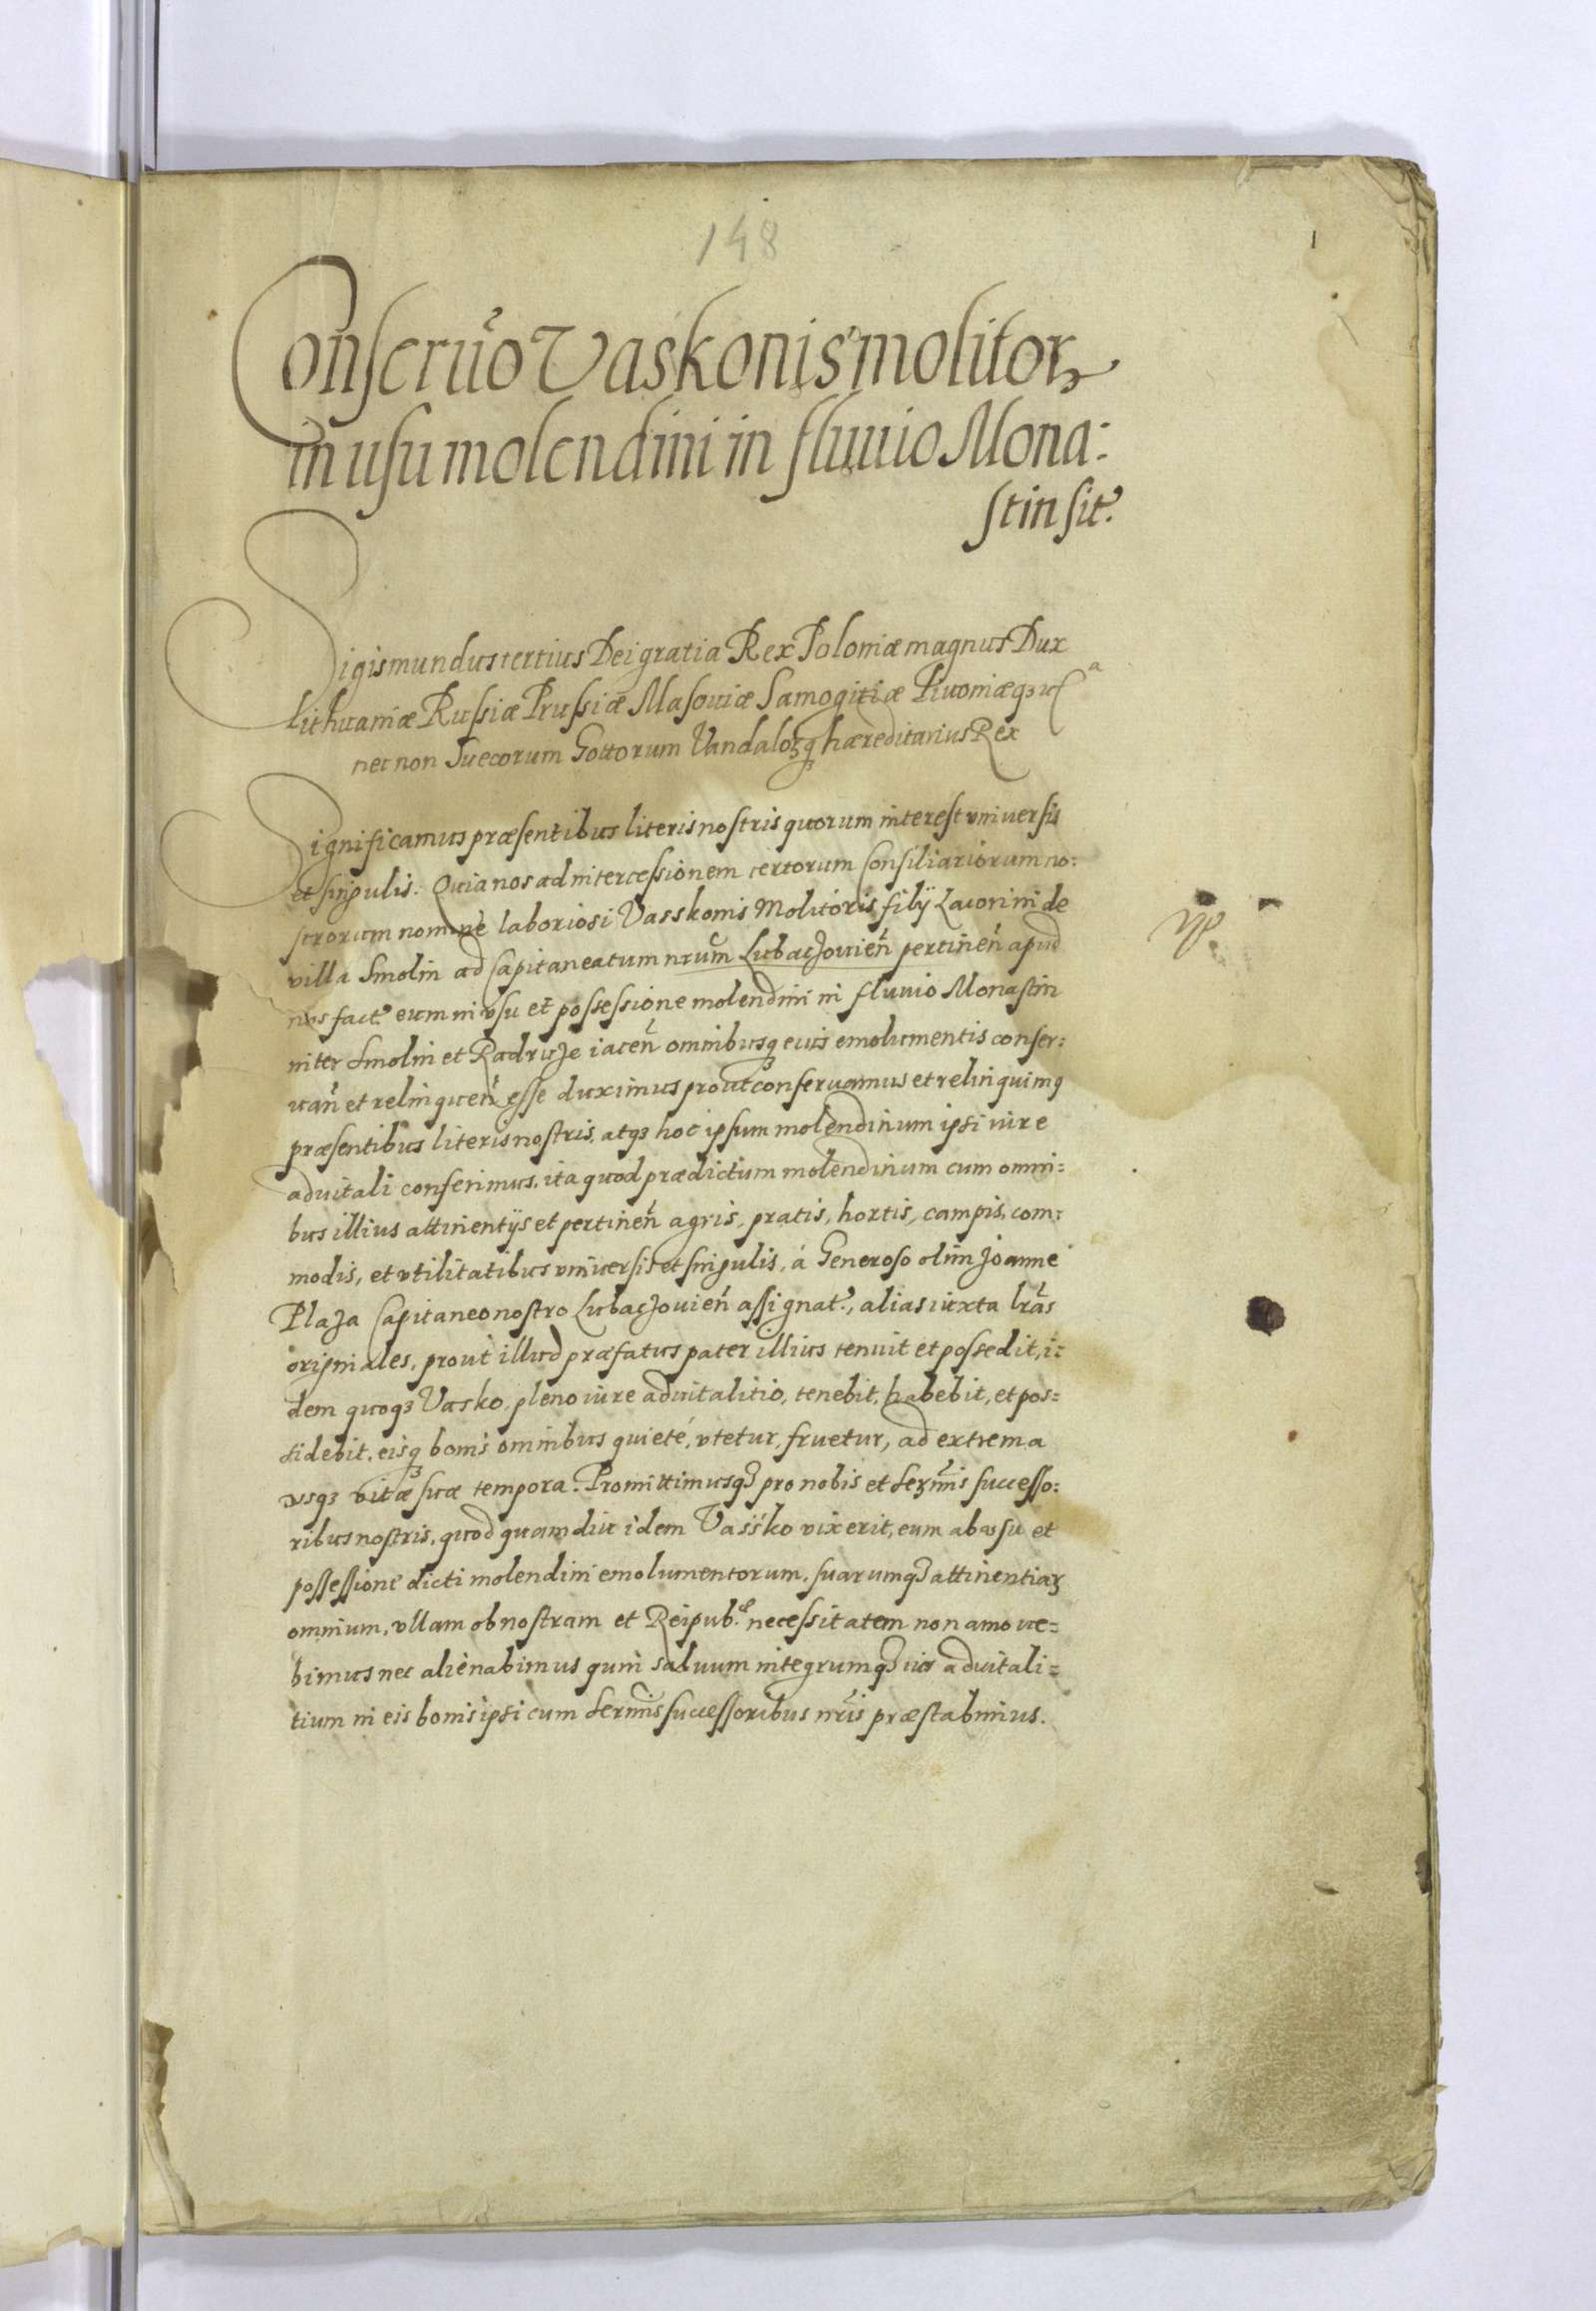 148
1
Conseruõ Vaskonis molitor
in usu molendini in fluuio Mona:
stin sit.
Sigismundus tertius Dei gratia Rex Poloniæ magnus Dux
Lithuaniæ Russiæ Prussiæ Masouiæ Samogitiæ Liuoniæqꝫ
nec non Suecorum Gottorum Vandaloꝝqꝫ hæreditarius Rex
Significamus præsentibus literis nostris quorum interest vniuersis
et singulis. Quia nos ad intercessionem certorum Consiliariorum no:
strorum nomine laboriosi Vasskonis Molitoris filÿ Lauorini de
villa Smolin ad Capitaneatum nrũm Lubaczouień pertineñ apud
nos fact. eum in vsu et possessione molendini in fluuio Monastin
inter Smolin et Radruze iaceñ omnibusqꝫ eius emolumentis conser:
uañ et relinqueñ esse duximus prout conseruamus et relinquimꝰ
præsentibus literis nostris, atqꝫ hoc ipsum molendinum ipsi iure
aduitali conferimus. ita quod prædictum molendinum cum omni:
bus illius attinentÿs et pertineñ agris, pratis, hortis, campis, com:
modis, et vtilitatibus vniuersis et singulis, á Generoso olim Joanne
Plaza Capitaneo nostro Lubaczouień assignat., alias iuxta lrãs
originales, prout illud præfatus pater illius tenuit et possedit, i:
dem quoqꝫ Vasko, pleno iure aduitalitio, tenebit, habebit, et pos=
sidebit. eisqꝫ bonis omnibus quieté, vtetur, fruetur, ad extrema
vsqꝫ vitæ suæ tempora. Promittimusqꝫ pro nobis et Serm̃is successo:
ribus nostris, quod quamdiu idem Vassko vixerit, eum ab vsu et
possessione dicti molendini emolumentorum, suarumqꝫ attinentiaꝝ
omnium, vllam ob nostram et Reipub.æ necessitatem non amoue=
bimus nec alienabimus quin saluum integrumqꝫ ius aduitali=
tium in eis bonis ipsi cum Serm̃is successoribus nrĩs præstabimus.